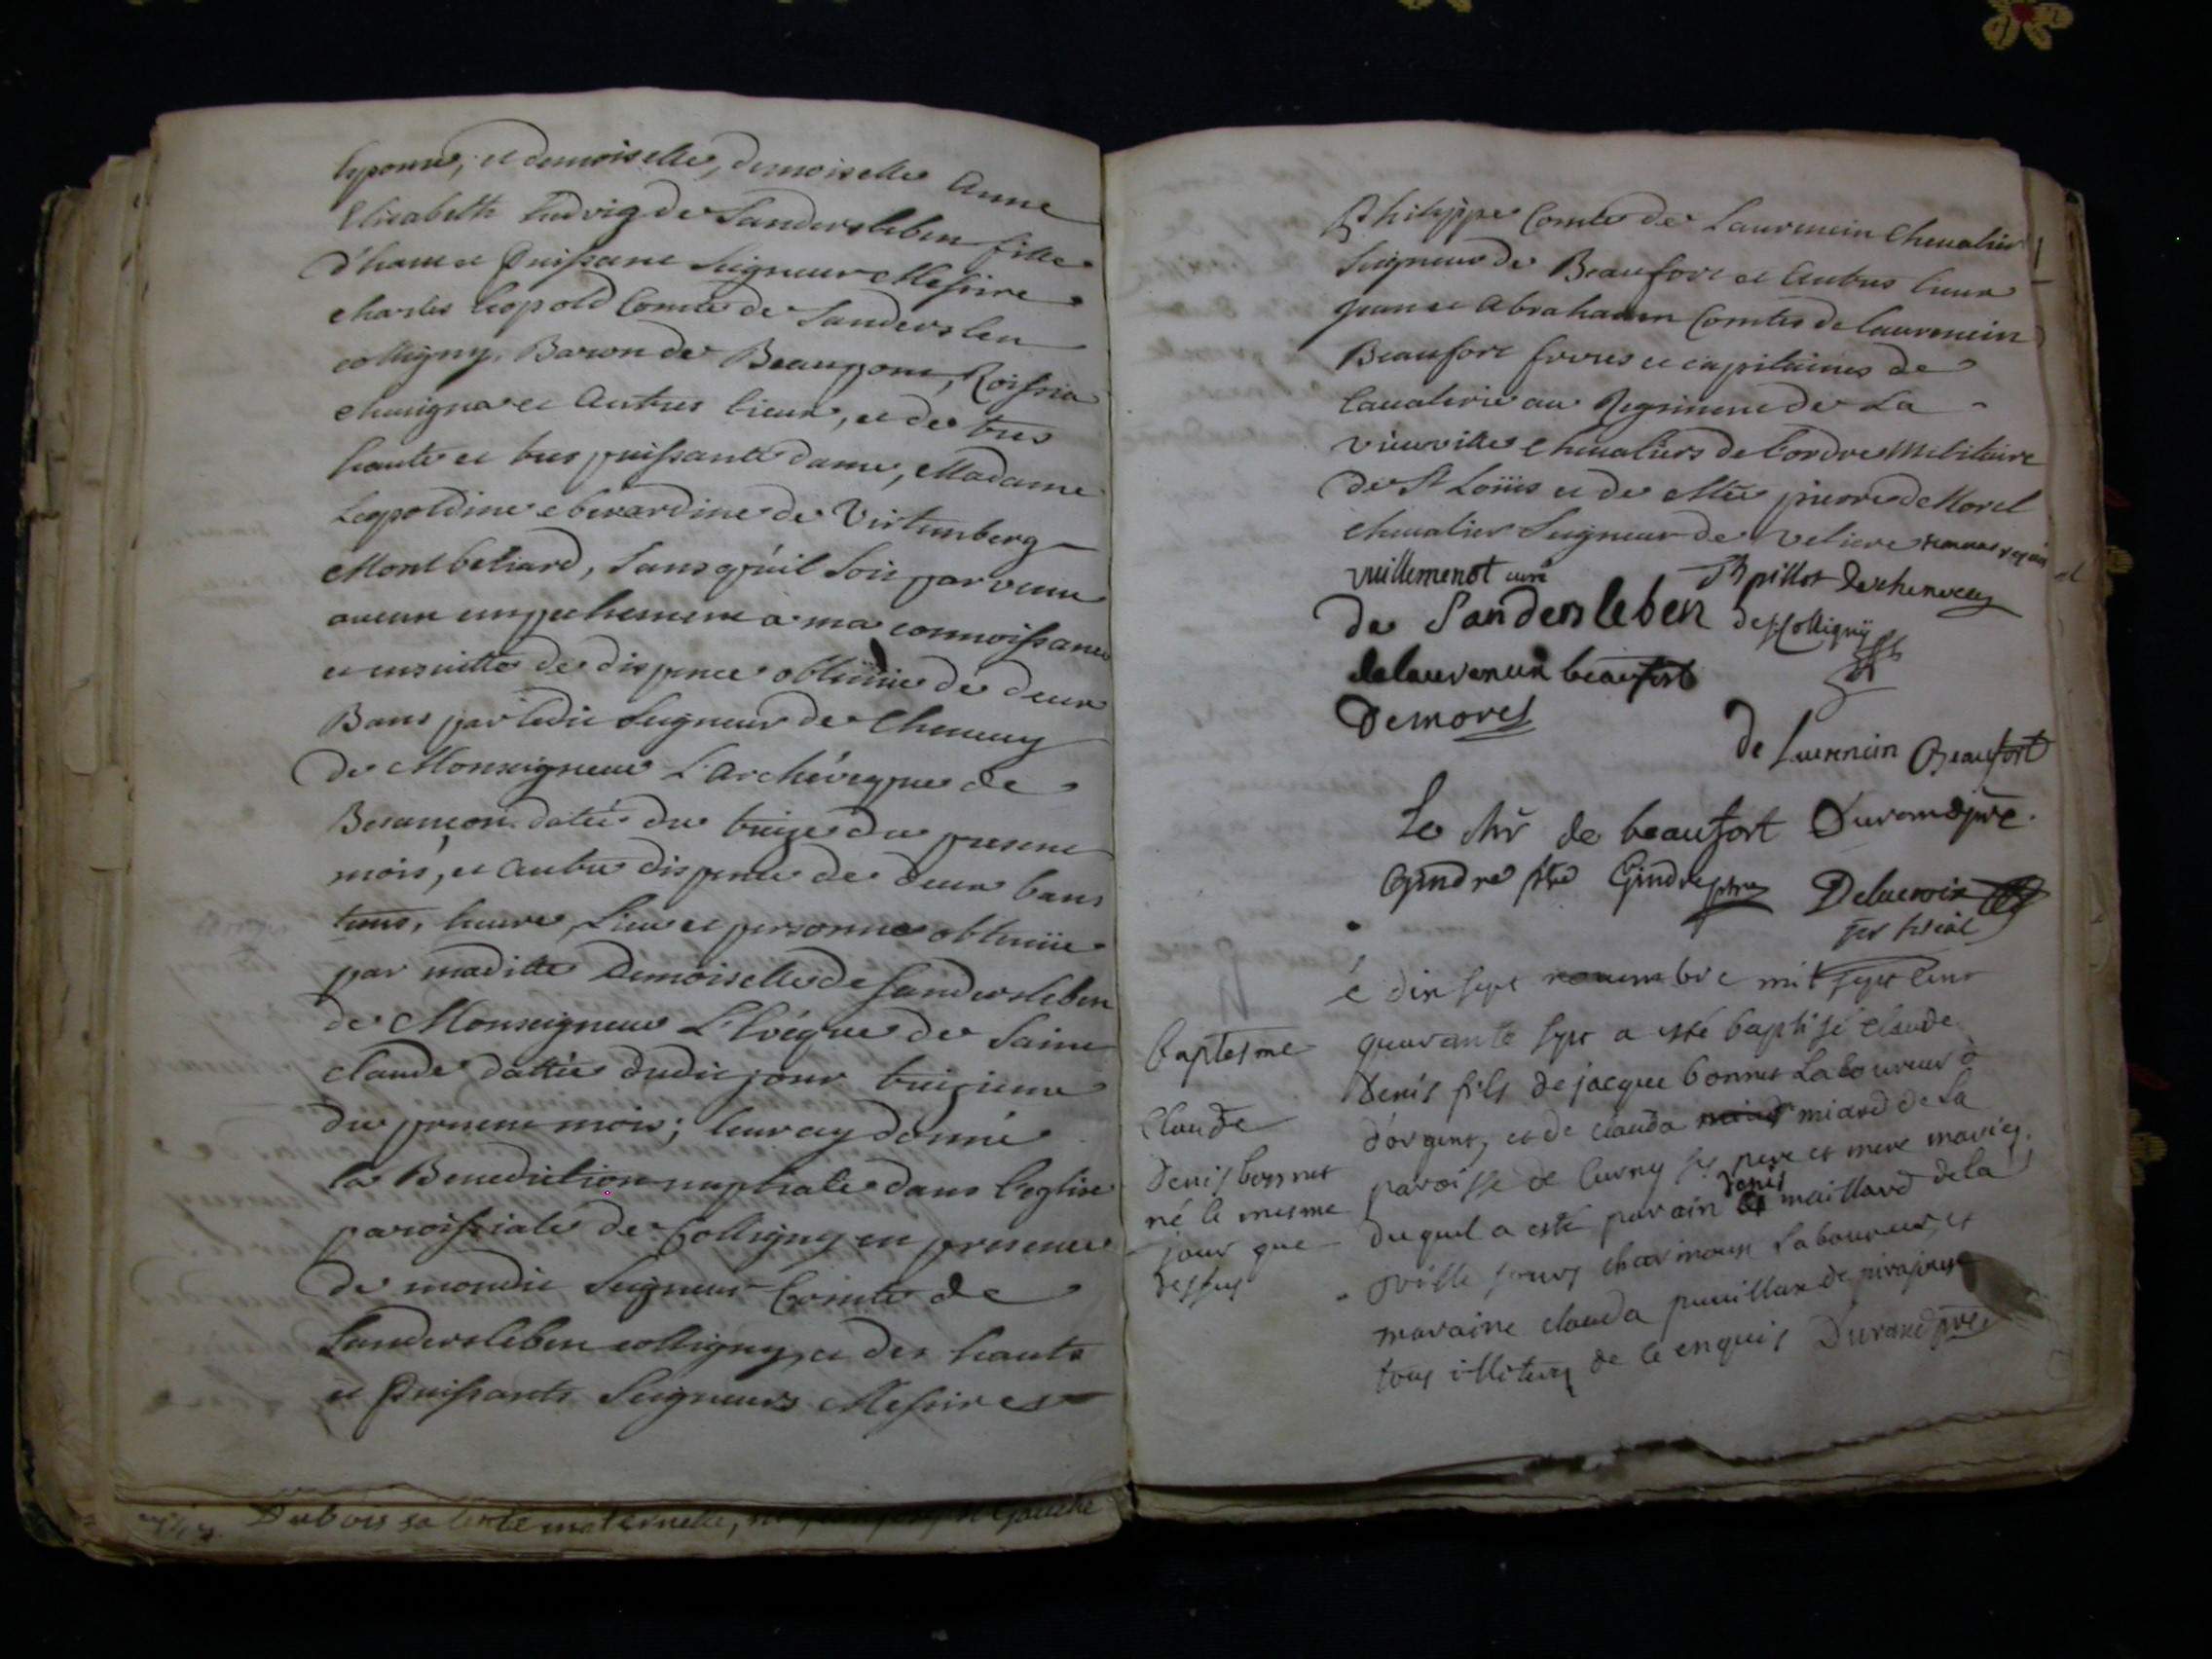 lyonne, et demoiselle, demoiselle Anne
Elisabeth Ludvig de Sandersleben fille
d'haut et Puissant Seigneur Messire
charles Leopold Comte de Sanderslen
colligny, Baron de Beaupont, Roissia
chavigna et Autres lieux, et de tres
haute et tres puissante dame, Madame
Leopoldine eberardine de Virtemberg
Montbeliard, sans qu'il soit parvenu
aucun empechement a ma connoissance
et ensuitte de dispence obtenüe de deux
Bans par ledit Seigneur de Chenecey
de Monseigneur L'Archévêque de
Besançon datée du treize du present
mois, et autre dispence de deux bans
tems, heure, Lieu et personne obtenüe
par maditte Demoiselle de Sandersleben
de Monseigneur L'Evêque de Saint
claude dattée dudit jour treizieme
du present mois; leur ay donné
la Benediction nuptiale dans l'eglise
paroissiale de Colligny en presence
de mondit Seigneur Comte de
Sandersleben colligny, et des hauts
et Puissants Seigneurs Messires
Dubois sa tante maternelle,
Philippe Comte de Laurencin Chevalier
Seigneur de Beaufort et Autres lieux
jean et Abraham Comtes de laurencin
Beaufort freres et capitaines de
Cavalerie au Regiment de La
vieuville Chevaliers de l'ordre Militaire
de St Loüis et de Mre pierre de Morel
chevalier Seigneur de Veliere
vuillemenot curé pillot Dechenecey
de Sandersleben de Colligny
delaurencin beaufort
Demorel
de Laurencin Beaufort
Le chr de beaufort Durand ptre.
Gindre ptre Gindre ptre Delacroix
é dix sept novembre mil sept cent
baptesme
quarante sept a esté baptisé claude
Denis fils de jacque bonnet Laboureur
Claude
d'orgent, et de clauda miard de La
Denis bonnet
paroisse de Curny ses pere et mere mariés.
né le mesme
duquel a esté parain denis maillard de la
jour que
ville sours charmoux Laboureur, et
dessus
maraine clauda puvilland de pirajoux
tous illiterez de ce enquis Durand ptre